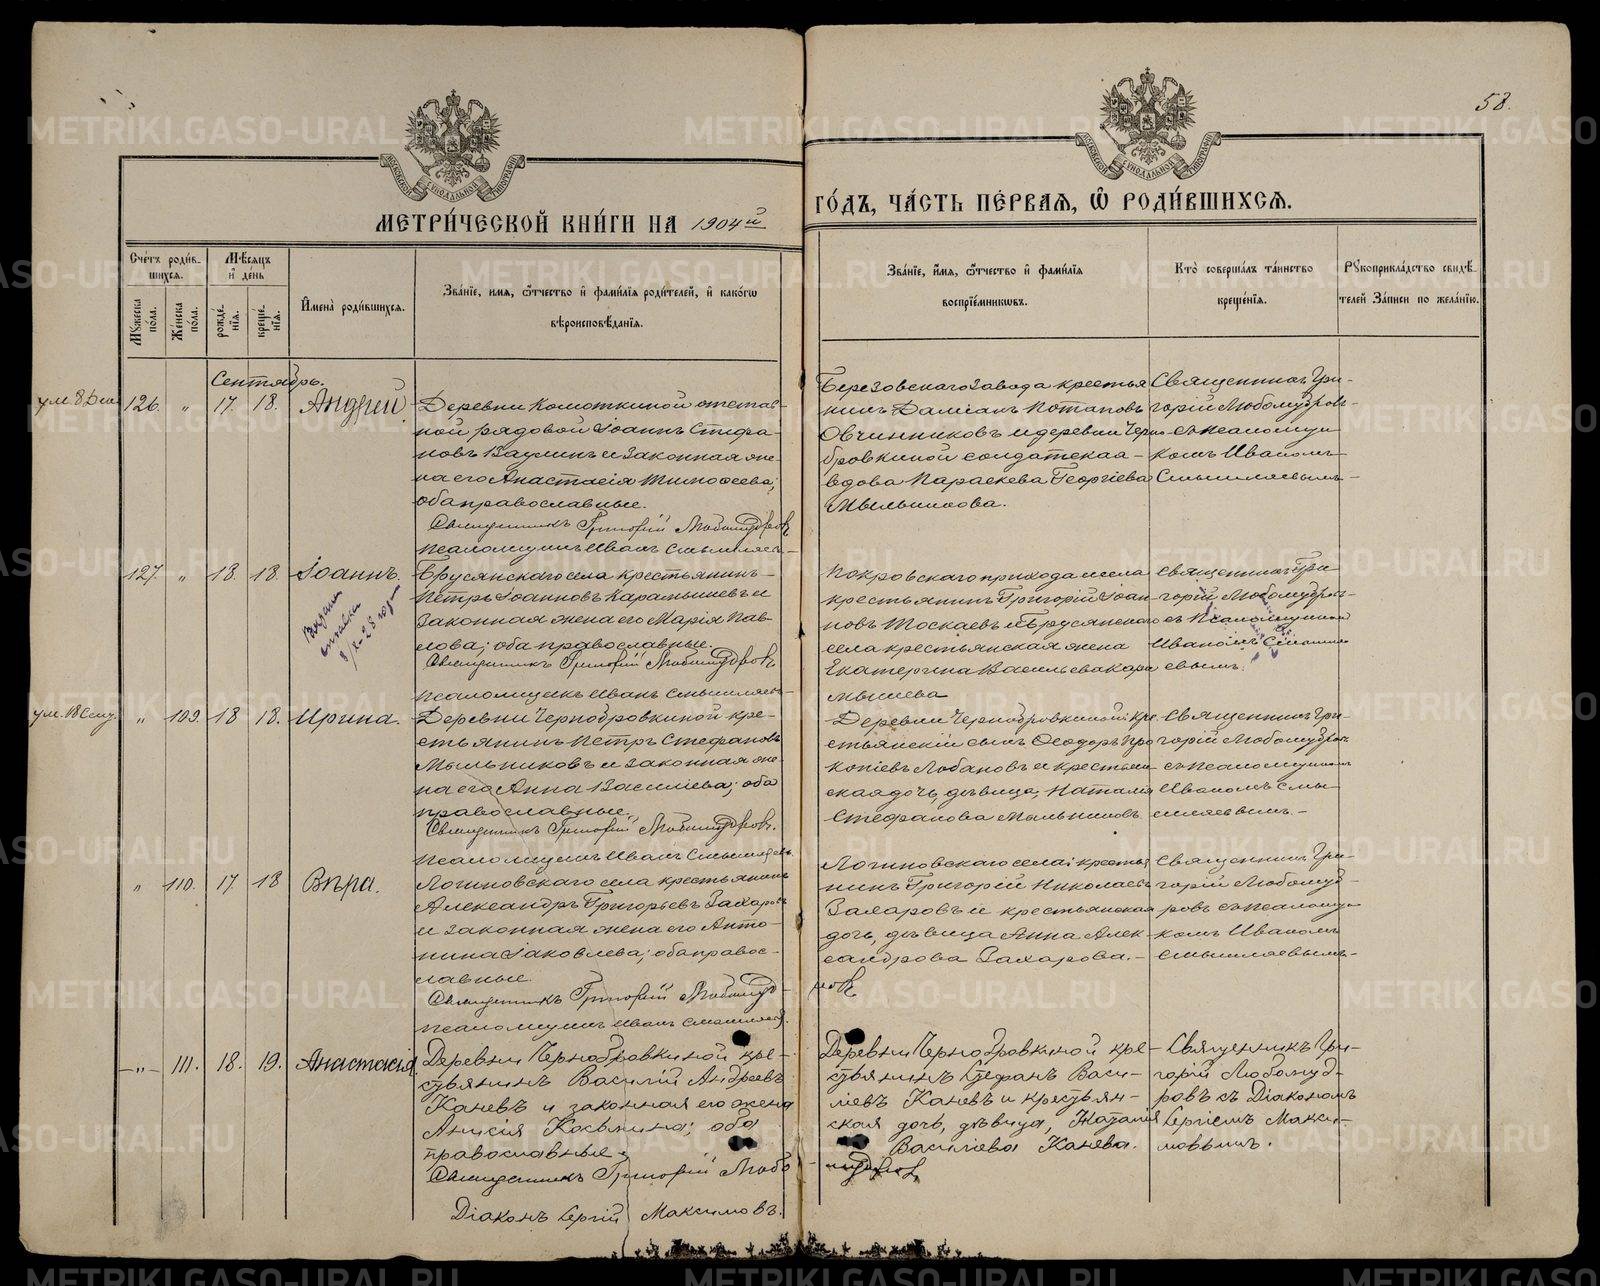 58.
МЕТРИ́ЧЕСКОЙ КНИ́ГИ НА 1904й
ГО́ДЪ, ЧА́СТЬ ПЕ́РВАЯ, Ѽ РОДИ́ВШИХСЯ.
Сче́тъ роди́в-
шихся.
Мꙋжеска по́ла.
Же́нска по́ла.
Мѣ́сяцъ
и҆ де́нь
рожде́нїя.
креще́нїя.
И҆мена̀ роди́вшихся.
Зва́нїе, имя, ѻ҆́тчество и҆ фами́лїя роди́телей, и҆ како́гѡ
вѣроисповѣ́данїя.
Зва́нїе, и҆́мя, ѻ҆́тчество и҆ фами́лїя
воспрїе́мникѡвъ.
Кто̀ соверша́лъ та́инство
креще́нїя.
Рꙋкоприкла́дство свидѣ́-
телей За́писи по жела́нїю.
Сентябрь.
126. " 17. 18. Андрей
Деревни Комоткиной отстав-
ной рядовой Іоаннъ Стефа-
новъ Ваулинъ и законная же-
на его Анастасія Тимоѳеева;
оба православные.
Священникъ Григорій Любомудровъ
Псаломщикъ Иванъ Смышляевъ
Березовскаго завода крестья
нинъ Даміанъ Потаповъ
Овчинниковъ и деревни Черно
бровкиной солдатская
вдова Параскева Георгіева
Мыльникова.
Священникъ Гри-
горій Любомудровъ
съ псаломщи
комъ Иваномъ
Смышляевымъ
127. " 18. 18. Іоаннъ.
Брусянскаго села крестьянинъ
Петръ Іоанновъ Карамышевъ и
законная жена его Марія Пав-
лова; оба православные.
Священникъ Григорій Любомудровъ
Псаломщикъ Иванъ Смышляевъ
Покровскаго прихода и села
крестьянинъ Григорій Іоан
новъ Москаевъ и Брусянскаго
села крестьянская жена
Екатерина Васильева Кара
мышева
Священникъ Гри
горій Любомудров-
съ Псаломщикомъ
Иваномъ Смышля
евымъ.
" 109 18 18. Ирина.
Деревни Чернобровкиной кре-
стьянинъ Петръ Стефановъ
Мыльниковъ и законная же-
на его Анна Василіева; оба
православные.
Священникъ Григорій Любомудровъ.
Псаломщикъ Иванъ Смышляевъ.
Деревни Чернобровкиной кре
стьянскій сынъ Ѳеодоръ Про
копіевъ Лобановъ и крестьян
ская дочь, дѣвица, Наталія
Стефанова Мыльников
Священникъ Гри-
горій Любомудровъ
съ псаломщикомъ
Иваномъ Смы
шляевымъ. -
" 110. 17. 18 Вѣра.
Логиновскаго села крестьянинъ
Александръ Григорьевъ Захаровъ
и законная жена его Анто-
нина Іаковлева; оба правос-
лавные
Священникъ Григорій Любомуд-
ровъ
Псаломщикъ Иванъ Смышляевъ.
Логиновскаго села крестья
нинъ Григорій Николаевъ
Захаровъ и крестьянская
дочь, дѣвица Анна Алек
сандрова Захарова. -
Священникъ Гри-
горій Любомуд-
ровъ съ псаломщи
комъ Иваномъ
Смышляевымъ-
-"- 111. 18. 19. Анастасія
Деревни Чернобровкиной кре-
стьянинъ Василій Андреевъ
Каневъ и законная его жена
Анисія Косьмина; оба
православные.
Священникъ Григорій Любо
мудровъ
Діаконъ Сергій Максимовъ.
Деревни Чернобровкиной кре-
стьянинъ Стефанъ Васи-
ліевъ Каневъ и крестьян-
ская дочь, дѣвица, Наталія
Василіева Канева.
Священникъ Гри-
горій Любомуд-
ровъ съ Діакономъ
Сергіемъ Макси-
мовымъ.
METRIKI.GASO-URAL.RU